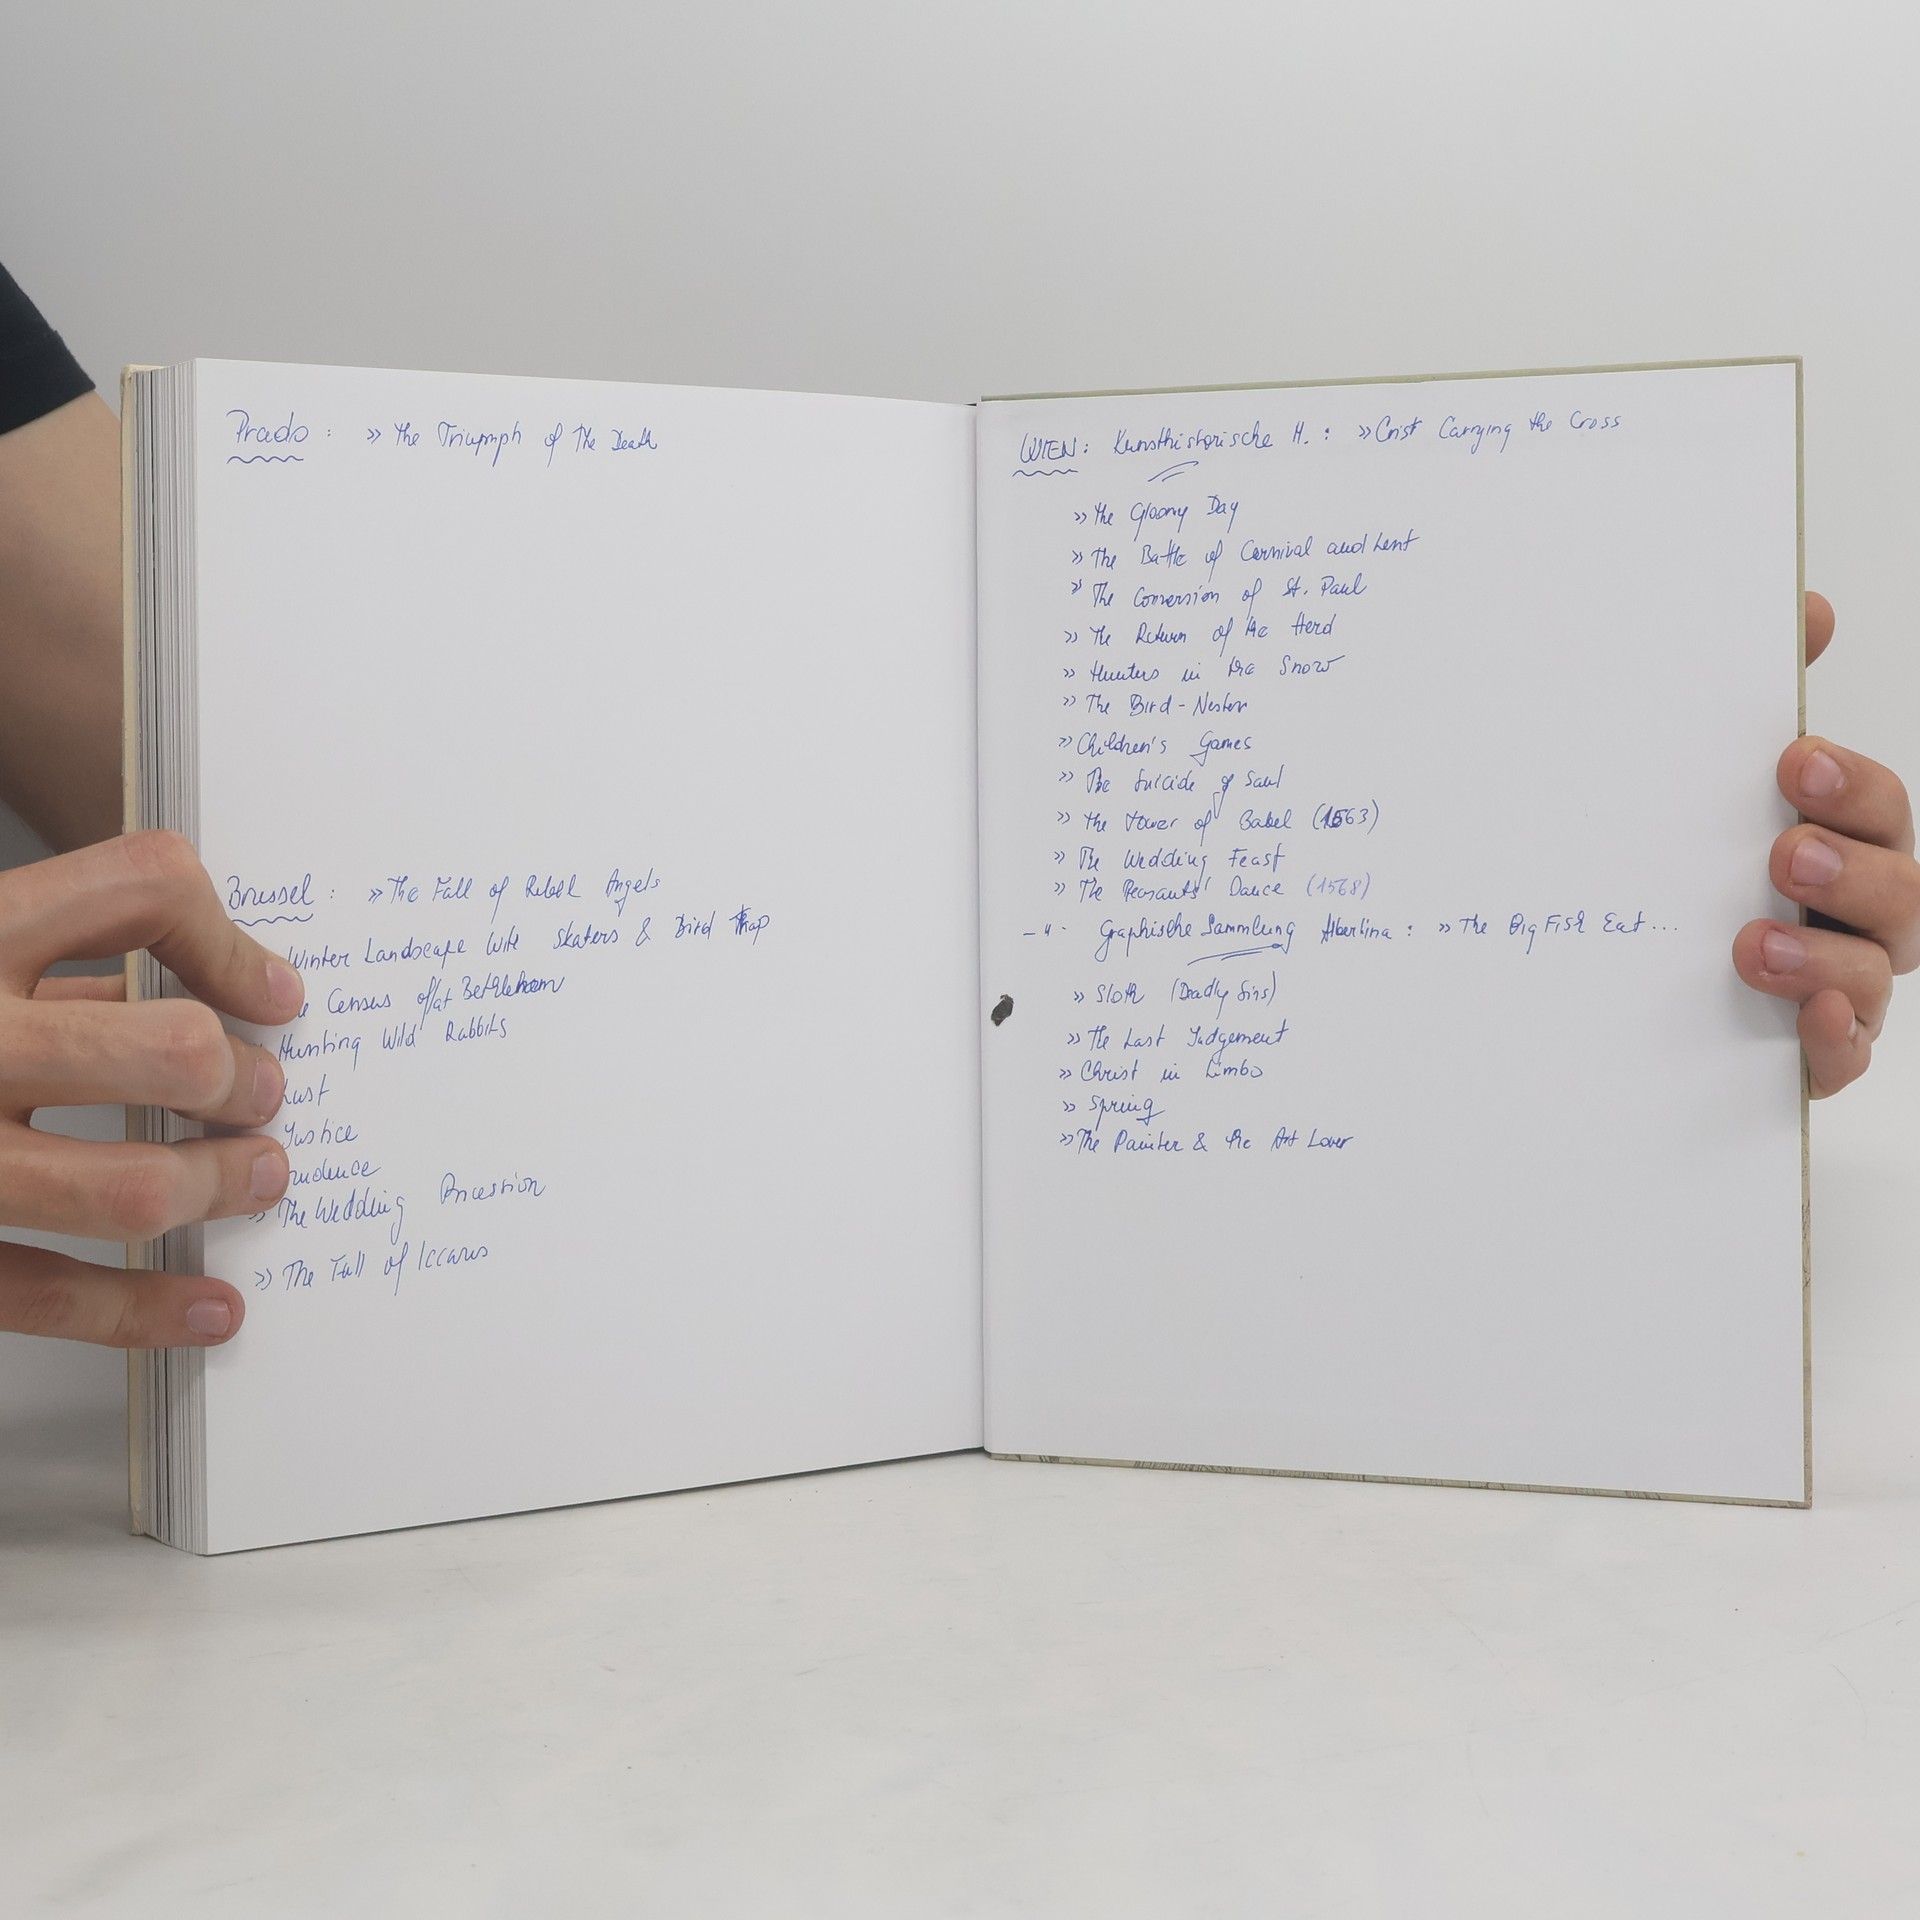 Prado : » the Triumph of The Death
Brussel : » The Fall of Rebel Angels
Winter Landscape with Skaters & Bird Trap
Census of/at Bethlehem
Hunting Wild Rabbits
Lust
Justice
» The Wedding Procession
» The Fall of Iccarus
WIEN: Kunsthistorische H. : » Crist Carrying the Cross
» The Gloomy Day
» The Battle of Carnival and Lent
» The Conversion of St. Paul
» The Return of the Herd
» Hunters in the Snow
» The Bird-Nester
» Children's Games
» The Suicide of Saul
» the Tower of Babel (1563)
» The Wedding Feast
» The Peasants' Dance (1568)
–"– Graphische Sammlung Albertina : » The Big Fish Eat...
» Sloth (Deadly Sins)
» The Last Judgement
» Christ in Limbo
» Spring
» The Painter & the Art Lover